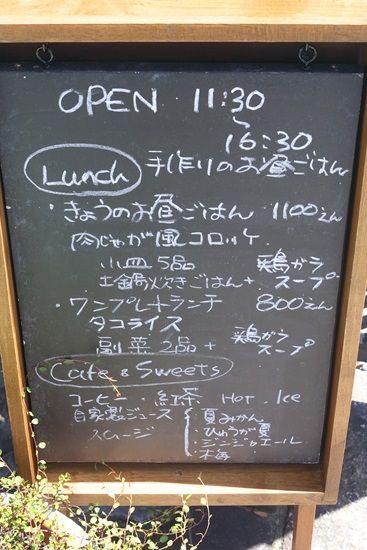 OPEN 11:30
〜
16:30
Lunch 手作りのお昼ごはん
・きょうのお昼ごはん 1100えん
肉じゃが風コロッケ
小皿5品 鶏ガラ
土鍋炊きごはん+ スープ
・ワンプレートランチ 800えん
タコライス
副菜2品+ 鶏ガラスープ
Cafe & Sweets
コーヒー・紅茶 Hot . Ice
自家製ジュース 夏みかん
スムージー ・ひゅうが夏
・ジンジャエール
・梅